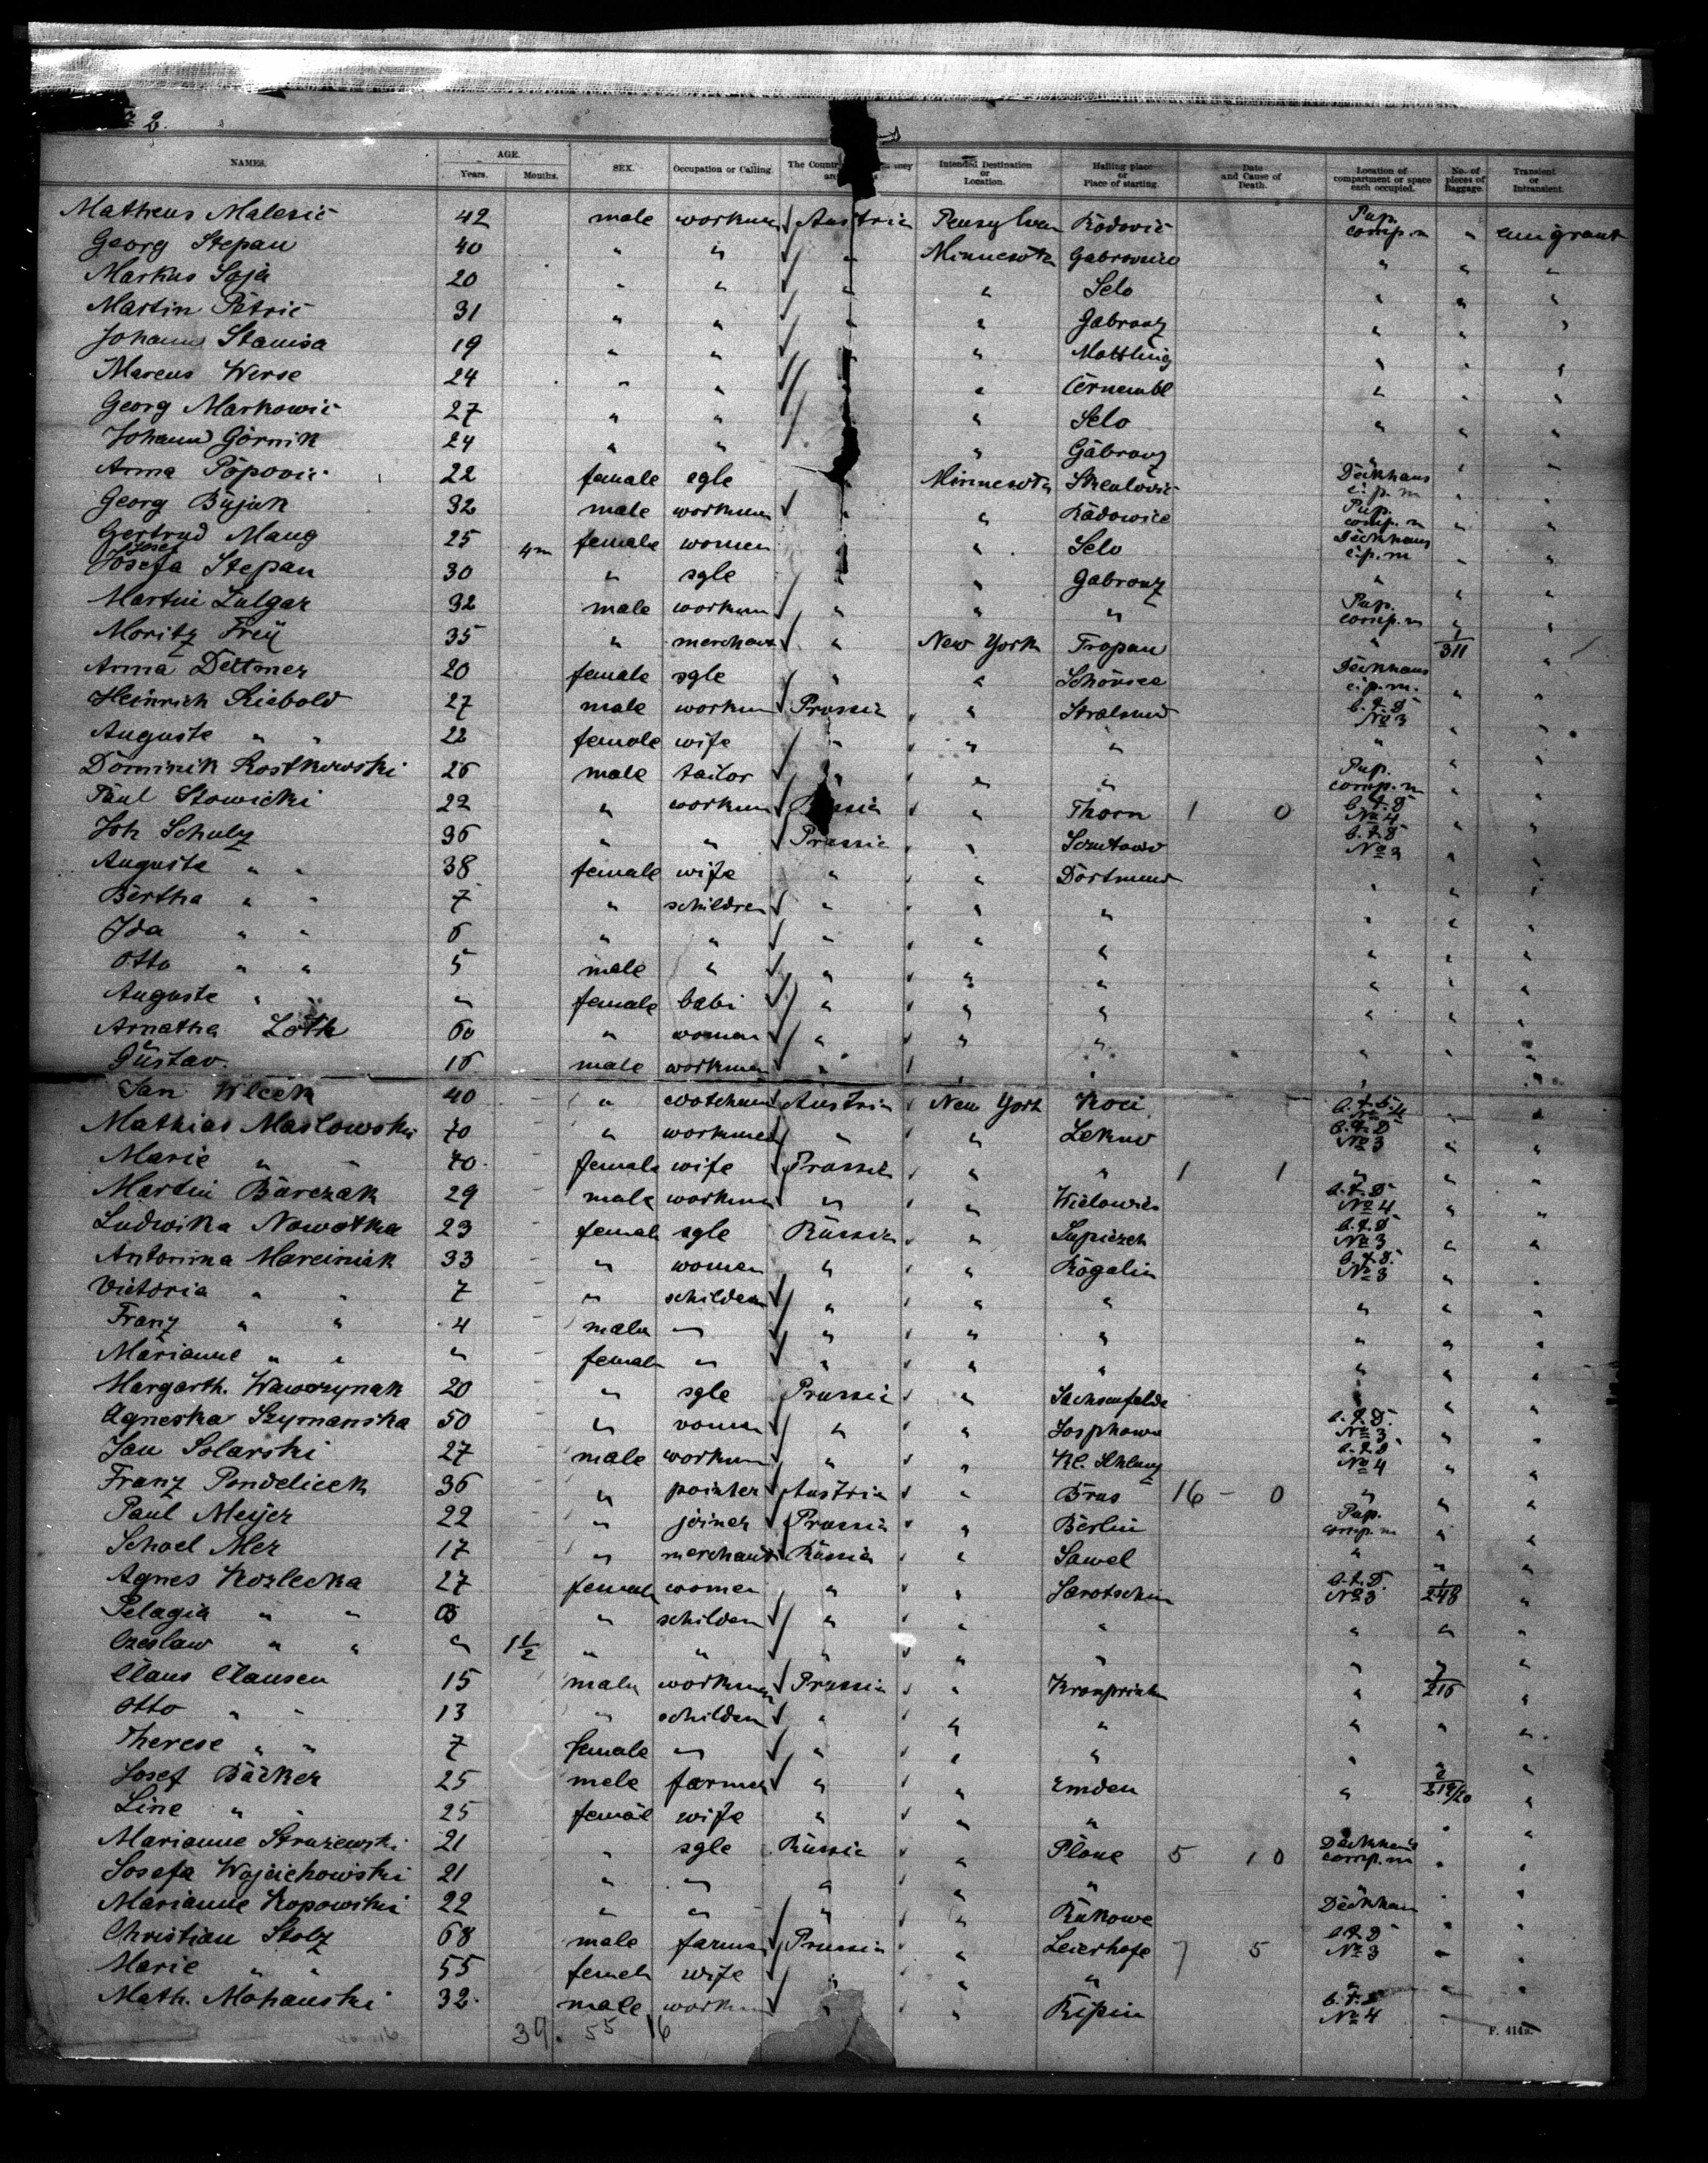 2.
NAMES. AGE. Years. Months. SEX. Occupation or Calling. The Country Intended Destination or Location. Hailing place or Place of starting. Date and Cause of Death. Location of compartment or space each occupied. No. of pieces of Baggage. Transient or Intransient.
Matheus Malesic 42 male workman Austria Pensylvan Radovic Pup. comp. m " emigrant
Georg Stepan 40 " " " Minnesota Gabrowice " " "
Markus Soja 20 " " " " Selo " " "
Martin Petric 31 " " " " Gabrouz " " "
Johann Stanisa 19 " " " " Mottling " " "
Marcus Werse 24 " " " " Cernembl " " "
Georg Markowic 27 " " " " Selo " " "
Johann Gornik 24 " " " " Gabrouz " " "
Anna Popovic 22 female sgle " Minnesota Deckhaus " "
Georg Bujak 32 male workman " " Radowice Pup. comp. m " "
Gertrud Maug 25 female women " " Selo Deckhaus " "
Josef 4m
Josefa Stepan 30 " sgle " " Gabrouz " " "
Martin Zulgar 32 male workman " " " Pup. comp. m " "
Moritz Frey 35 " merchant " New York Tropau " 1/311 "
Anna Dettmer 20 female sgle " " Schönsee Deckhaus " "
Heinrich Siebold 27 male workman Prussia " Stralsund No 3 " "
Auguste " " 22 female wife " " " " " "
Dominik Rostkowski 26 male tailor " " " Pup. comp. m " "
Paul Stowicki 22 " workman Russia " Thorn 1 0 No 4 " "
Joh Schulz 36 " " Prussia " No 3 " "
Auguste " " 38 female wife " " Dortmund " " "
Bertha " " 7 " schildren " " " " " "
Ida " " 6 " " " " " " " "
Otto " " 5 male " " " " " " "
Auguste " " " female babi " " " " " "
Arnatha Loth 60 " woman " " " " " "
Gustav. 16 male workman " " " " " "
Jan Wlcek 40 " Austria New York Koci " "
Mathias Maslowski 70 " workmen " " Lekno No 3 " "
Marie " " 70 female wife Prussia " " 1 1 " " "
Martin Barczak 29 male workman " " No 4 " "
Ludwika Nowotka 23 female sgle Russia " No 3 " "
Antonina Marciniak 33 " women " " Rogalin No 3 " "
Victoria " " 7 " schildren " " " " " "
Franz " " 4 male " " " " " " "
Marianne " " " female " " " " " " "
Margarth. Wawrzynak 20 " sgle Prussia " Sachsenfelde " " "
Agneska Szymanska 50 " woman " " Josphowo No 3 " "
Jan Solarski 27 male workman " " No 4 " "
Franz Pondelicek 36 " pointer Austria " Bras 16 - 0 " " "
Paul Meyer 22 " joiner Prussia " Berlin Pup. comp. m " "
Schoel Mer 17 " merchant Russia " Sawel " " "
Agnes Kozlecka 27 female women " " Sarotschin No 3 1/248 "
Pelagia " " " schildren " " " " " "
Czeslaw " " " 1 1/2 " " " " " " " "
Claus Clausen 15 male workman Prussia " " 1/216 "
Otto " " 13 " schildren " " " " " "
Therese " " 7 female " " " " " " "
Josef Bäcker 25 male farmer " " Emden " 2/219/20 "
Line " " 25 female wife " " " " "
Marianne Struzewski 21 " sgle Russia " Plone 5 10 Deckhaus comp. m " "
Josefa Wojciehowiski 21 " " " " " " " "
Marianne Kopowiski 22 " " " " Rukowe Deckhaus " "
Christian Stolz 68 male farmer Prussia " Leierhofe 7 5 No 3 " "
Marie " " 55 female wife " " " " " "
Math. Mohanski 32 male workman " " Ripin No 4 "
39. 55 16